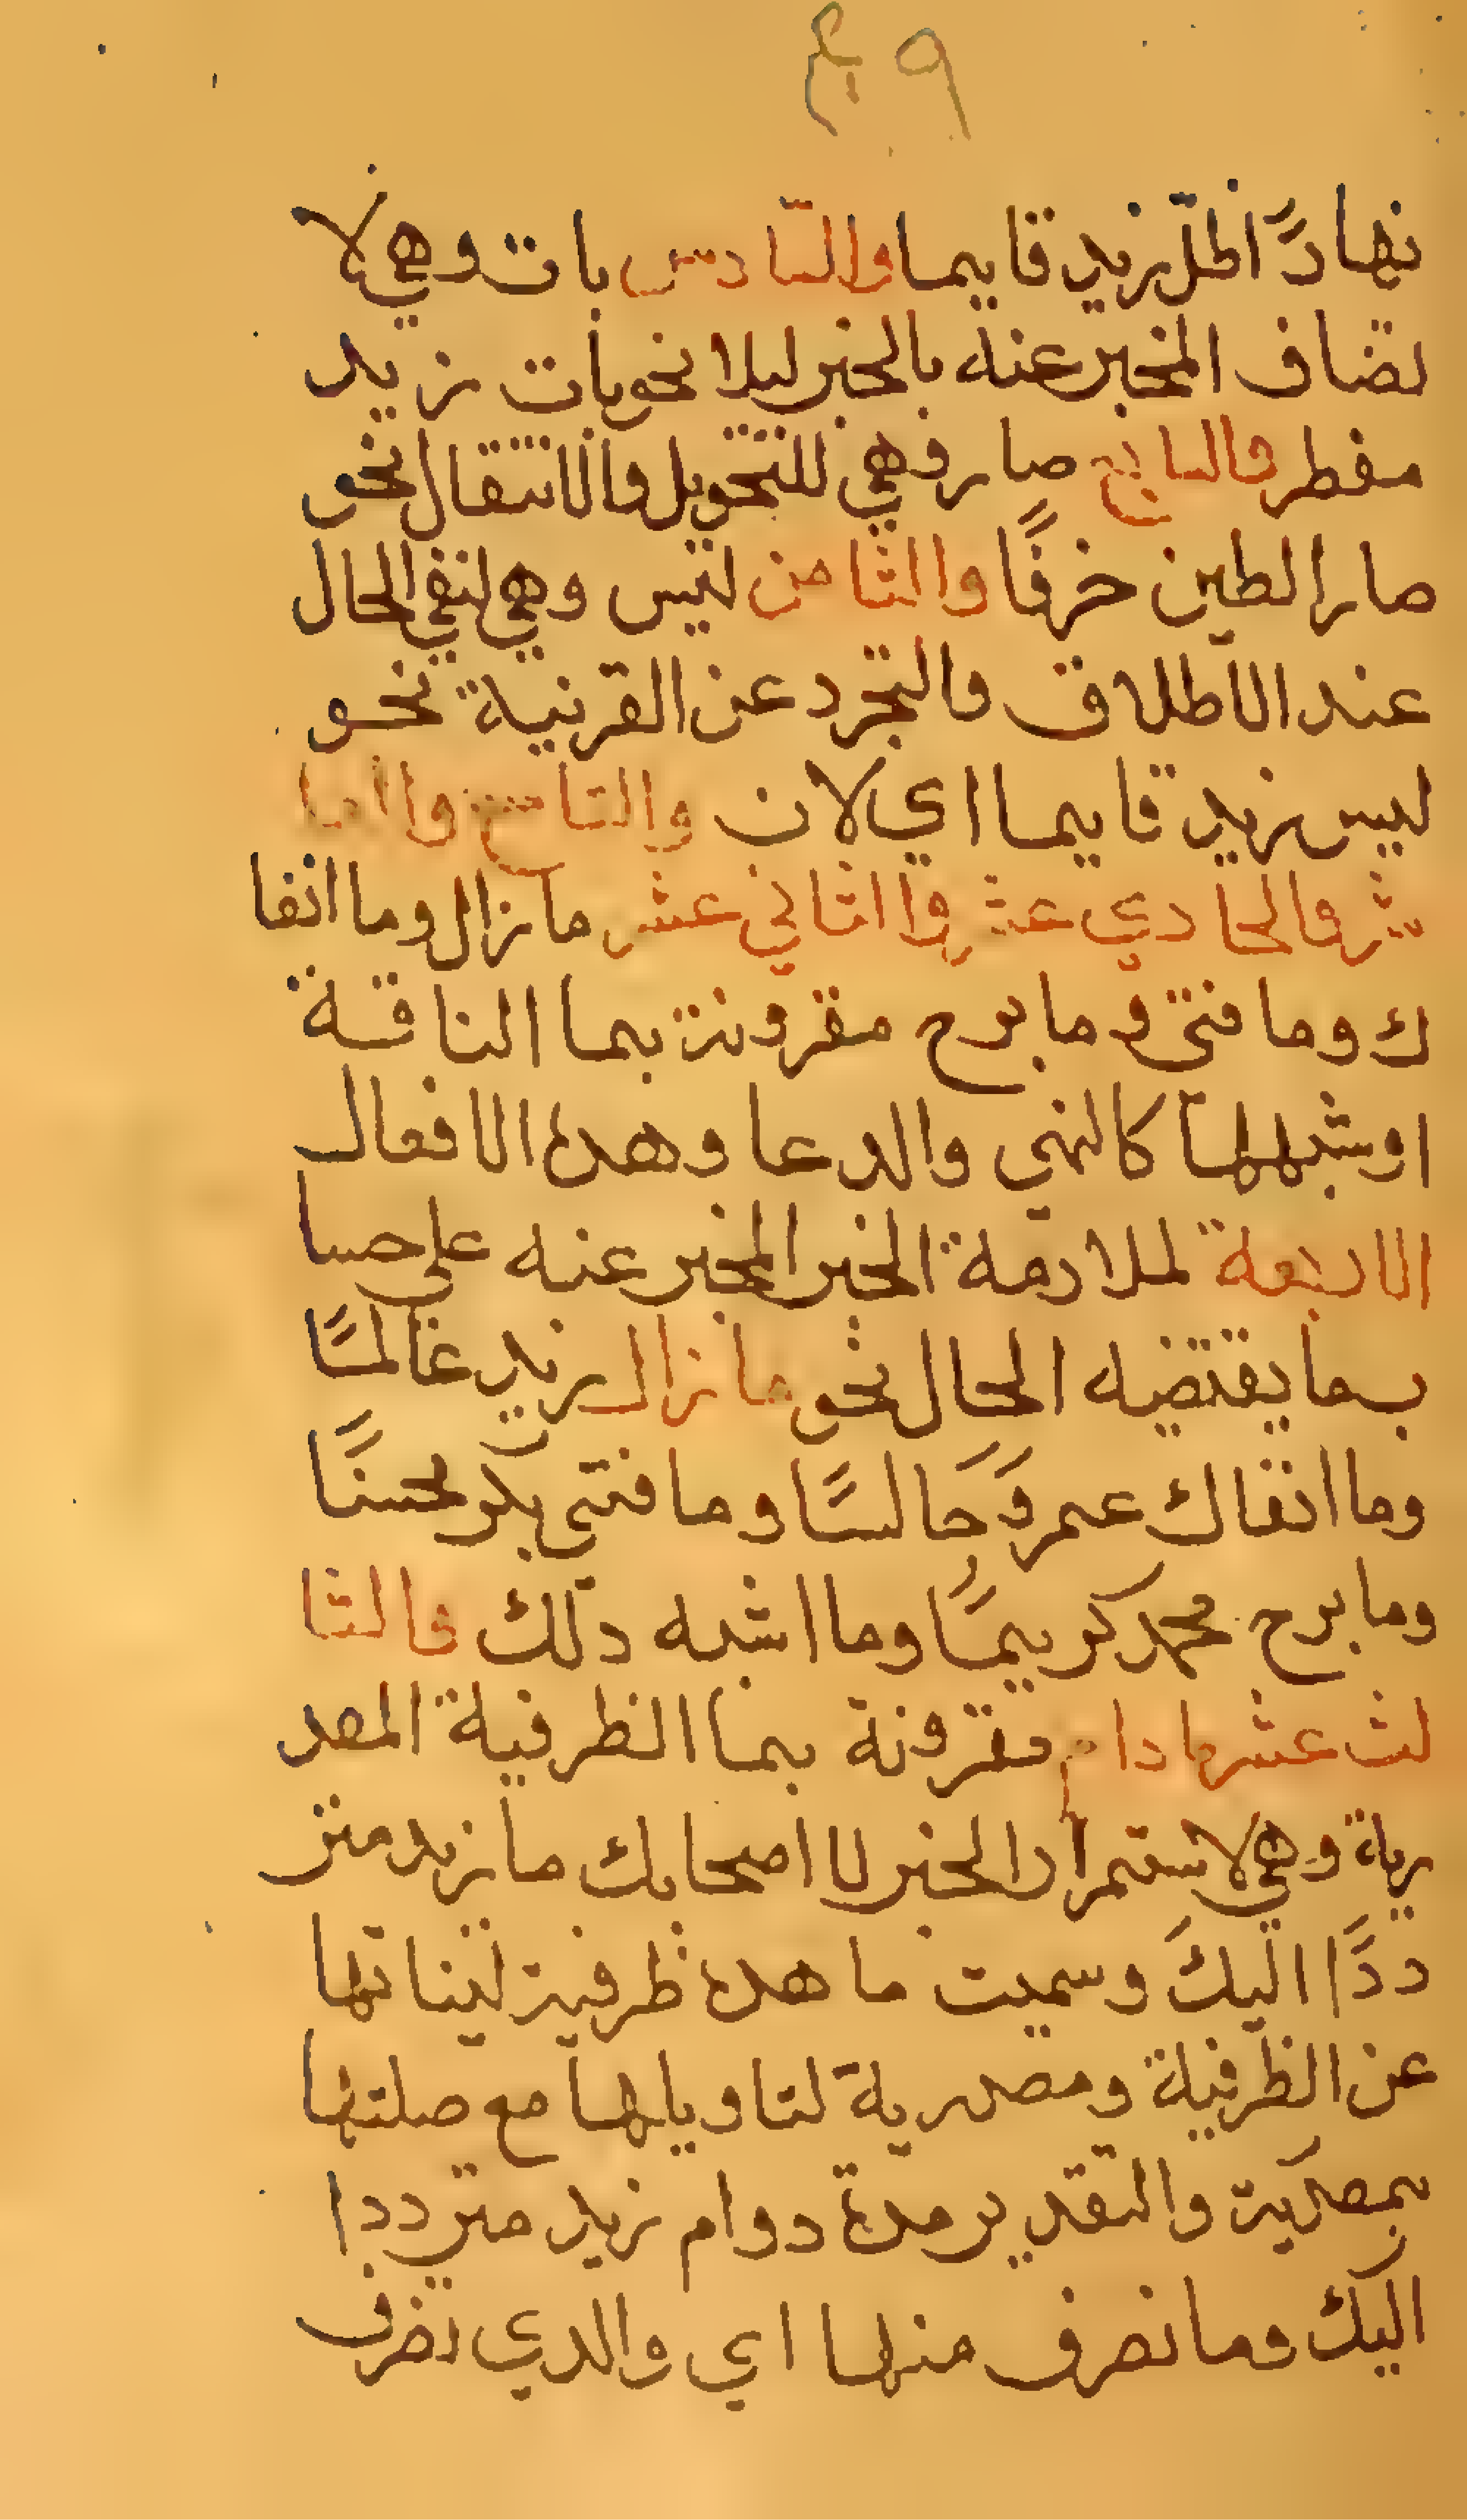 ٤٩
نهارًا ظل زيد قايما والسّادس بات وهي لا
تضاف المخبر عنه بالخبر ليلا نحو بات زيد
مفطر والسابع صار وهي للتحويل والانتقال نحو
صار الطين خزفًا والثامن ليس وهي لنفي الحال
عند الاطلاق والتجرد عن القرنية نحو
ليس زيد قايما اي لان والتاسع والعا
شر والحادي عشر والثاني عشر ما زال وما انفا
ك وما فتى وما برح مقرونة بما النافية
او شبهها كالنهي والدعا وهده الافعال
الاربعة لملازمة الخبر المخبر عنه علي حسا
ب ما يقتضيه الحال نحو ما زال زيد عالمًا
وما انفاك عمروً جالسًا وما فتي بكر محسنًا
وما برح محمد كريمًا وما اشبه دلك والثا
لث عشر ما دام مقرونة بما الظرفية المصد
رية وهي لاستمرار الخبر لا اصحابك ما زيد متر
ددًا اليك وسميت ما هده ظرفية لنيابتها
عن الظرفية ومصدرية لتاويلها مع صلتها
بمصدرية والتقدير مدة دوام زيد مترددا
اليك وما تصرف منها اي والدي تصرف